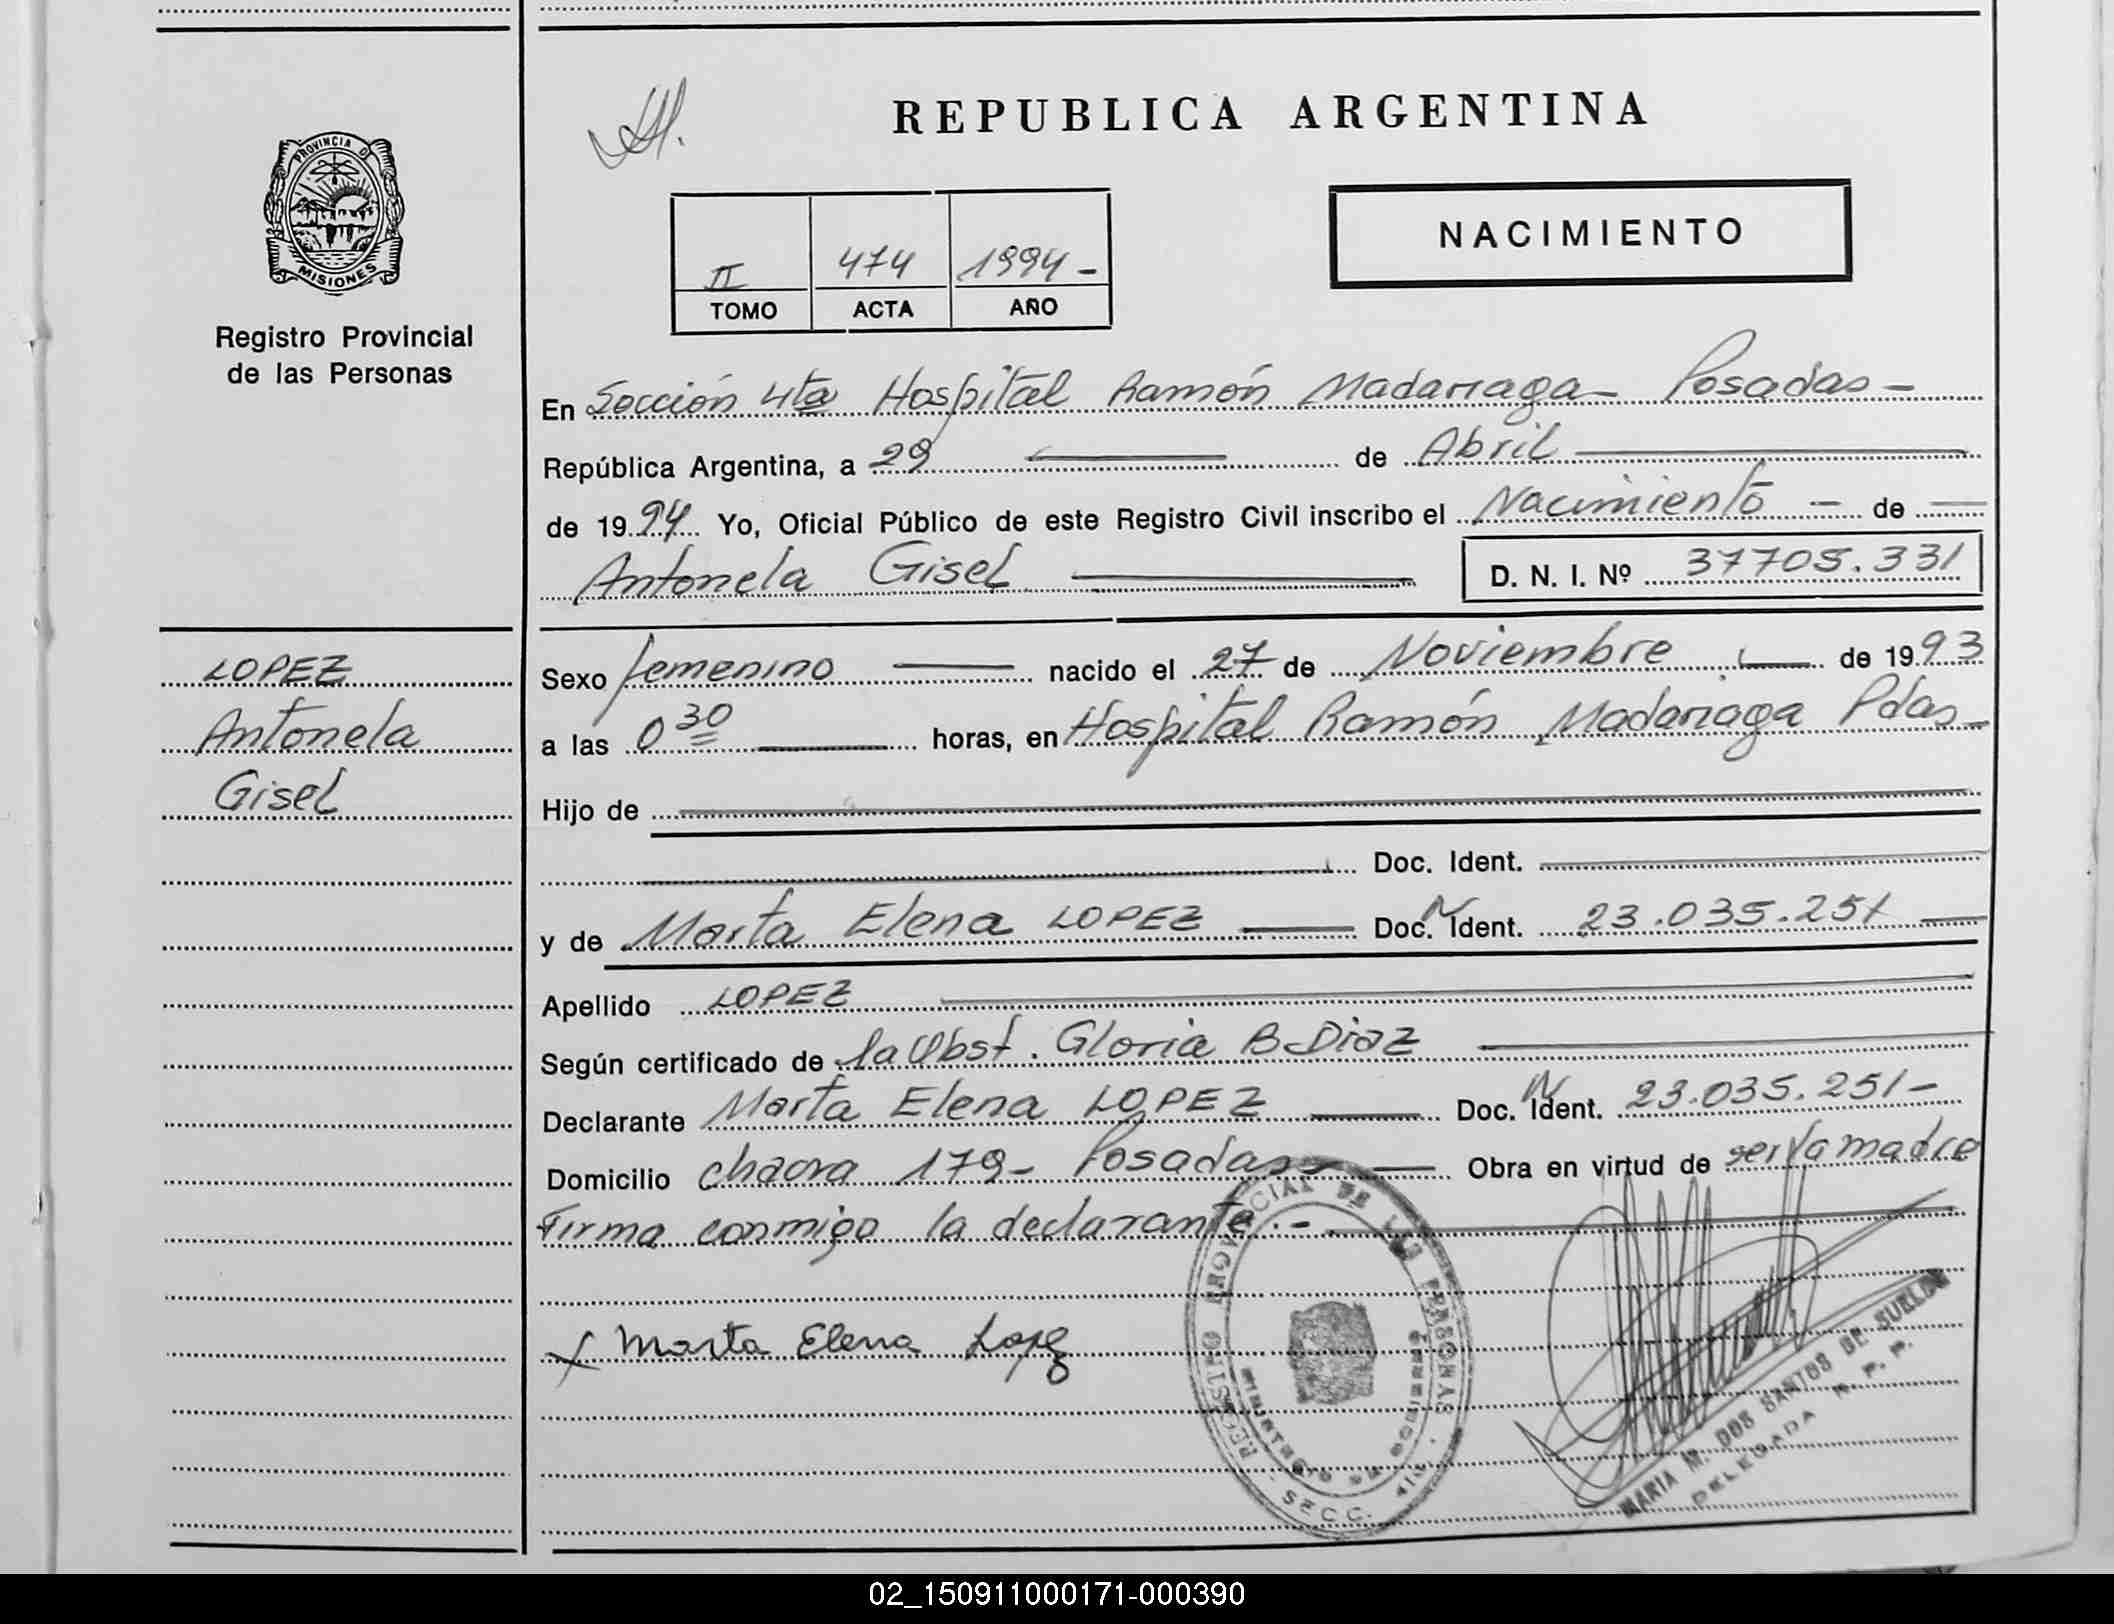 REPUBLICA ARGENTINA
NACIMIENTO
II 474 1994-
TOMO ACTA AÑO
PROVINCIA DE
MISIONES
Registro Provincial
de las Personas
En Sección 4ta Hospital Ramón Madariaga - Posadas -
República Argentina, a 29 de Abril
de 1994 Yo, Oficial Público de este Registro Civil inscribo el Nacimiento - de
Antonela Gisel D. N. I. Nº 37705.331
LOPEZ
Antonela
Gisel
Sexo femenino nacido el 27 de Noviembre de 1993
a las 0 30 horas, en Hospital Ramón Madariaga Pdas -
Hijo de
Doc. Ident.
y de Marta Elena LOPEZ Doc. N Ident. 23.035.251
Apellido LOPEZ
Según certificado de la Obst. Gloria B. Diaz
Declarante Marta Elena LOPEZ Doc. N Ident. 23.035.251 -
Domicilio chacra 179 - Posadas Obra en virtud de ser la madre
Firma conmigo la declarante. -
x Marta Elena Lopez
REGISTRO PROVINCIAL DE LAS PERSONAS
MINISTERIO DE GOBIERNO
SECC. 4ta.
MARIA M. DOS SANTOS DE
DELEGADA R. P. P.
02_150911000171-000390